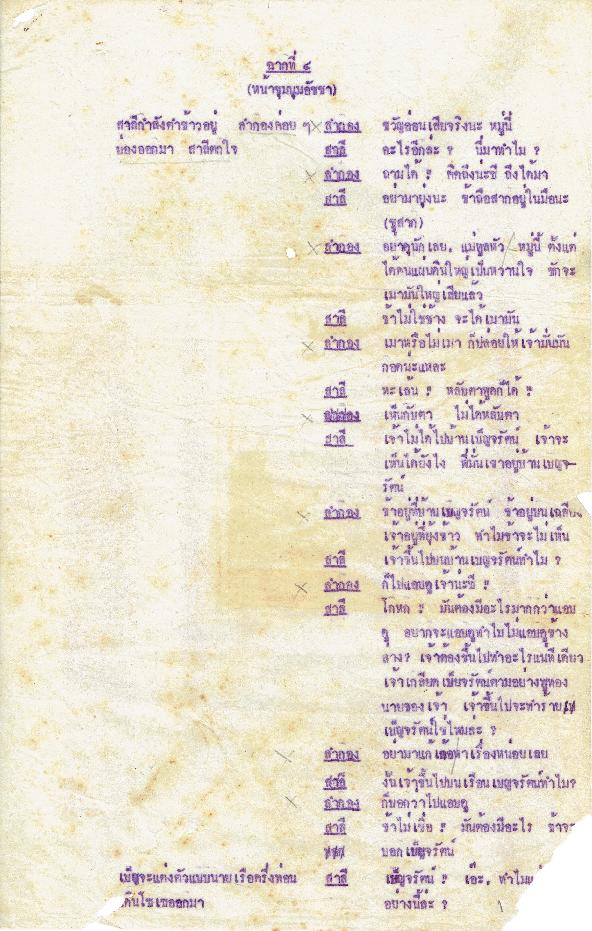 ฉากที่ ๔
(หน้าชุมนุมอัชชา)
สาลีกำลังตำข้าวอยู่ ลำกองค่อย ๆ ลำกอง ขวัญอ่อนเสียจริงนะ หมู่นี้
ย่องออกมา สาลีตกใจ สาลี อะไรอีกล่ะ ? นี่มาทำไม ?
ลำกอง ถามได้ ! คิดถึงน่ะซี ถึงได้มา
สาลี อย่ามายุ่งนะ ข้าถือสากอยู่ในมือนะ
(ชูสาก)
ลำกอง อย่าดุนักเลย, แม่ทูลหัว หมู่นี้ ตั้งแต่
ได้คนแผ่นดินใหญ่เป็นหวานใจ ชักจะ
เมามันใหญ่เสียแล้ว
สาลี ข้าไม่ใช่ช้าง จะได้เมามัน
ลำกอง เมาหรือไม่เมา ก็ปล่อยให้เจ้ามั่นมัน
กอดน่ะแหละ
สาลี ทะเล้น ! หลับตาพูดก็ได้ !
ลำกอง เห็นกับตา ไม่ได้หลับตา
สาลี เจ้าไม่ได้ไปบ้านเบ็ญจรัตน์ เจ้าจะ
เห็นได้ยังไง พี่มั่นเขาอยู่บ้านเบญจ-
รัตน์
ลำกอง ข้าอยู่ที่บ้านเบญจรัตน์ ข้าอยู่บนเฉลียง
เจ้าอยู่ที่ยุ้งข้าว ทำไมข้าจะไม่เห็น
สาลี เจ้าขึ้นไปบนบ้านเบญจรัตน์ทำไม ?
ลำกอง ก็ไปแอบดูเจ้าน่ะซี !
สาลี โกหก ! มันต้องมีอะไรมากกว่าแอบ
ดู อยากจะแอบดูทำไมไม่แอบดูข้าง
ล่าง? เจ้าต้องขึ้นไปทำอะไรแน่ทีเดียว
เจ้าเกลียดเบ็ญจรัตน์ตามอย่างพูทอง
นายของเจ้า เจ้าขึ้นไปจะทำร้าย
เบ็ญจรัตน์ใช่ไหมล่ะ ?
ลำกอง อย่ามาแก้ เรื่องหน่อยเลย
สาลี งั้นเจ้าขึ้นไปบนเรือนเบญจรัตน์ทำไม?
ลำกอง ก็บอกว่าไปแอบดู
สาลี ข้าไม่เชื่อ ! มันต้องมีอะไร ข้าจะ
บอกเบ็ญจรัตน์
เบ็ญจะแต่งตัวแบบนายเรือครึ่งท่อน สาลี เบ็ญจรัตน์ ! เอ๊ะ, ทำไม
เดินโซเซออกมา อย่างนี้ล่ะ ?